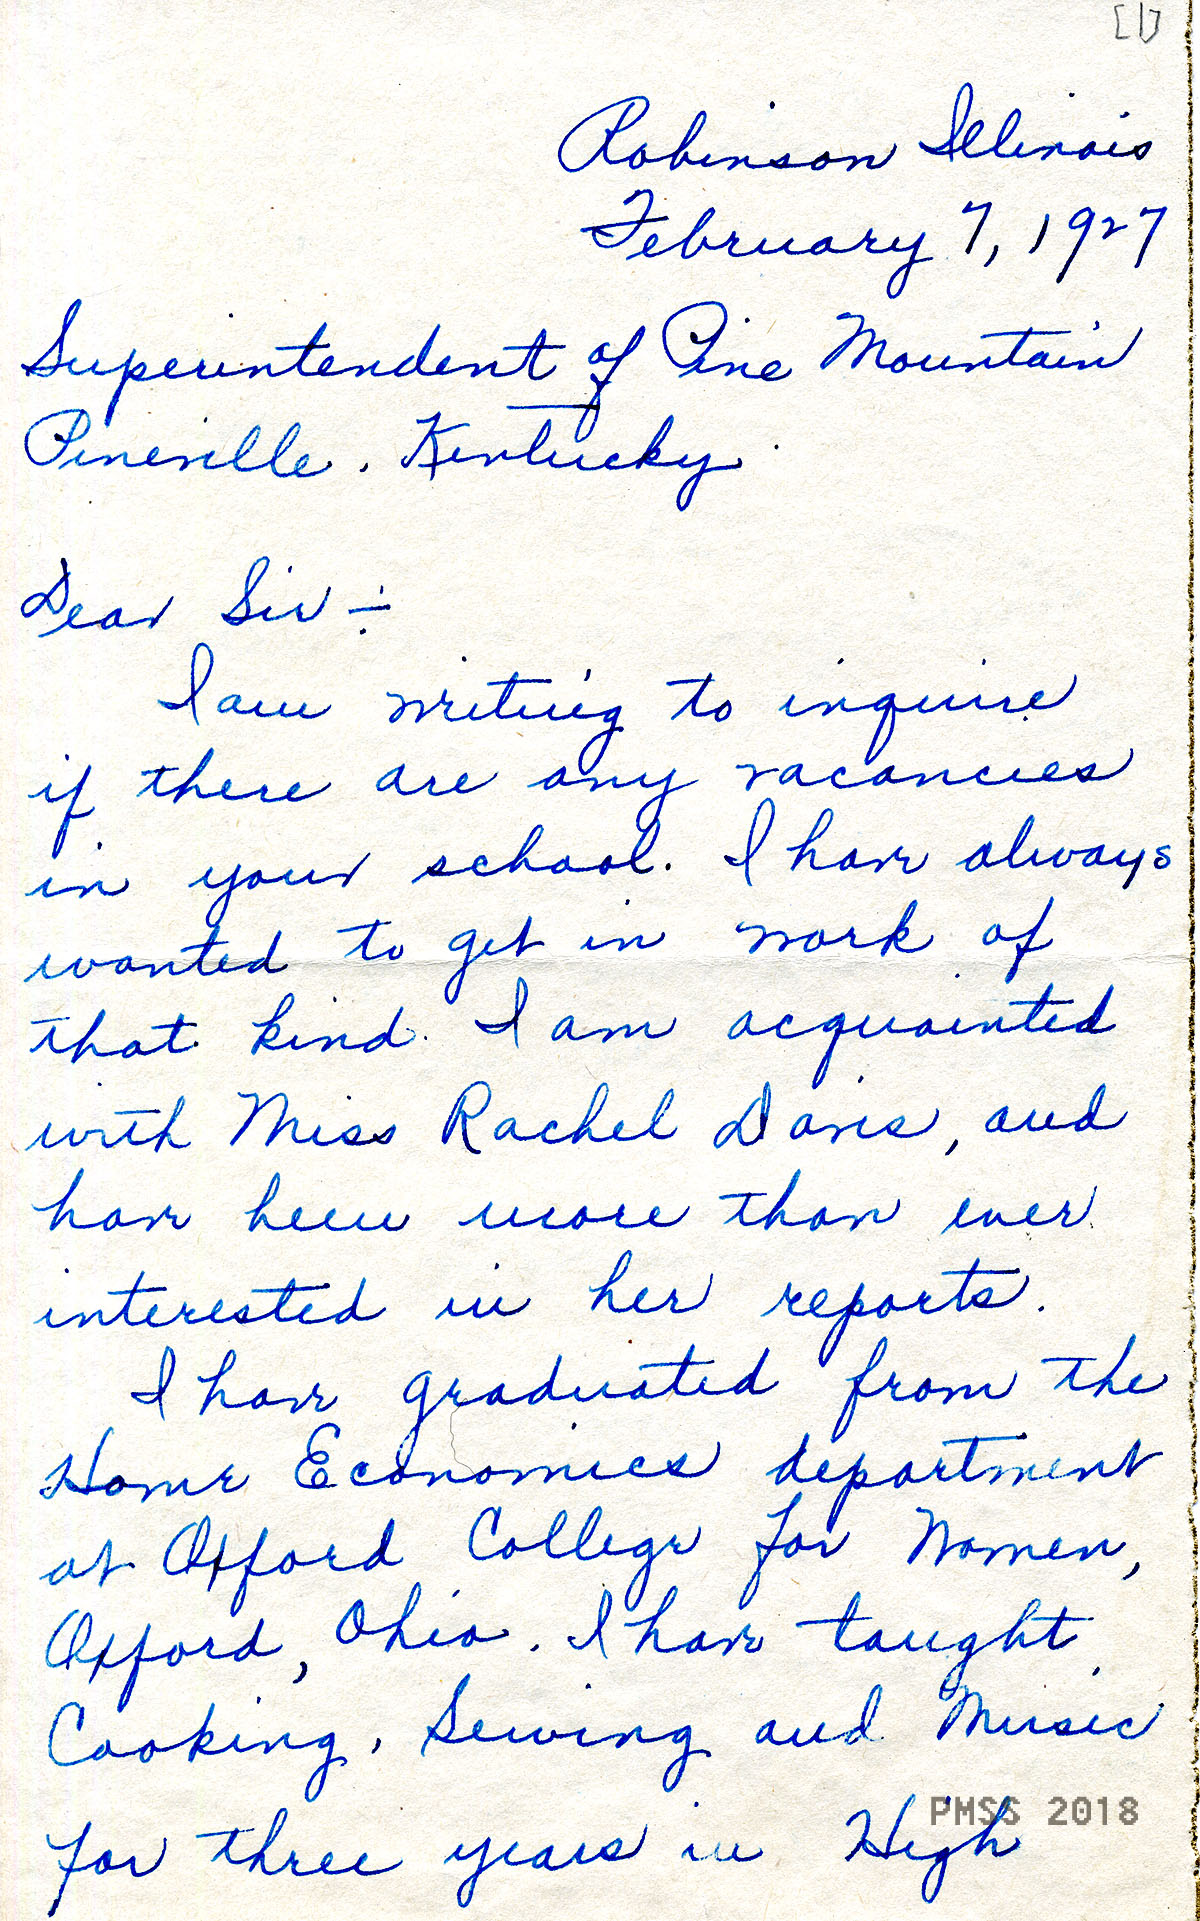 [1]
Robinson Illinois
February 7, 1927
Superintendent of Pine Mountain
Pineville, Kentucky.
Dear Sir:-
I am writing to inquire
if there are any vacancies
in your school. I have always
wanted to get in work of
that kind. I am acquainted
with Miss Rachel Davis, and
have been more than ever
interested in her reports.
I have graduated from the
Home Economics department
at Oxford College for Women,
Oxford, Ohio. I have taught
Cooking, Sewing and Music
PMSS 2018
for three years in High